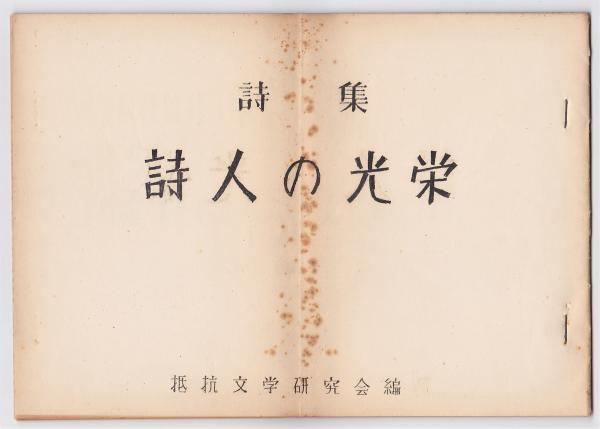 詩集
詩人の光栄
抵抗文学研究会編